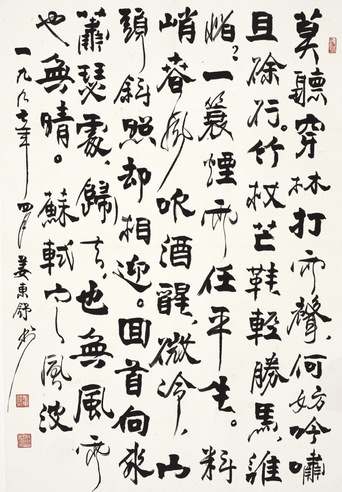 莫聽穿林打雨聲，何妨吟嘯
且徐行。竹杖芒鞋輕勝馬，誰
怕？一蓑煙雨任平生。料
峭春風吹酒醒，微冷，山
頭斜照却相迎。回首向來
蕭瑟處，歸去，也無風雨
也無晴。蘇軾定風波
一九九七年四月姜東舒書